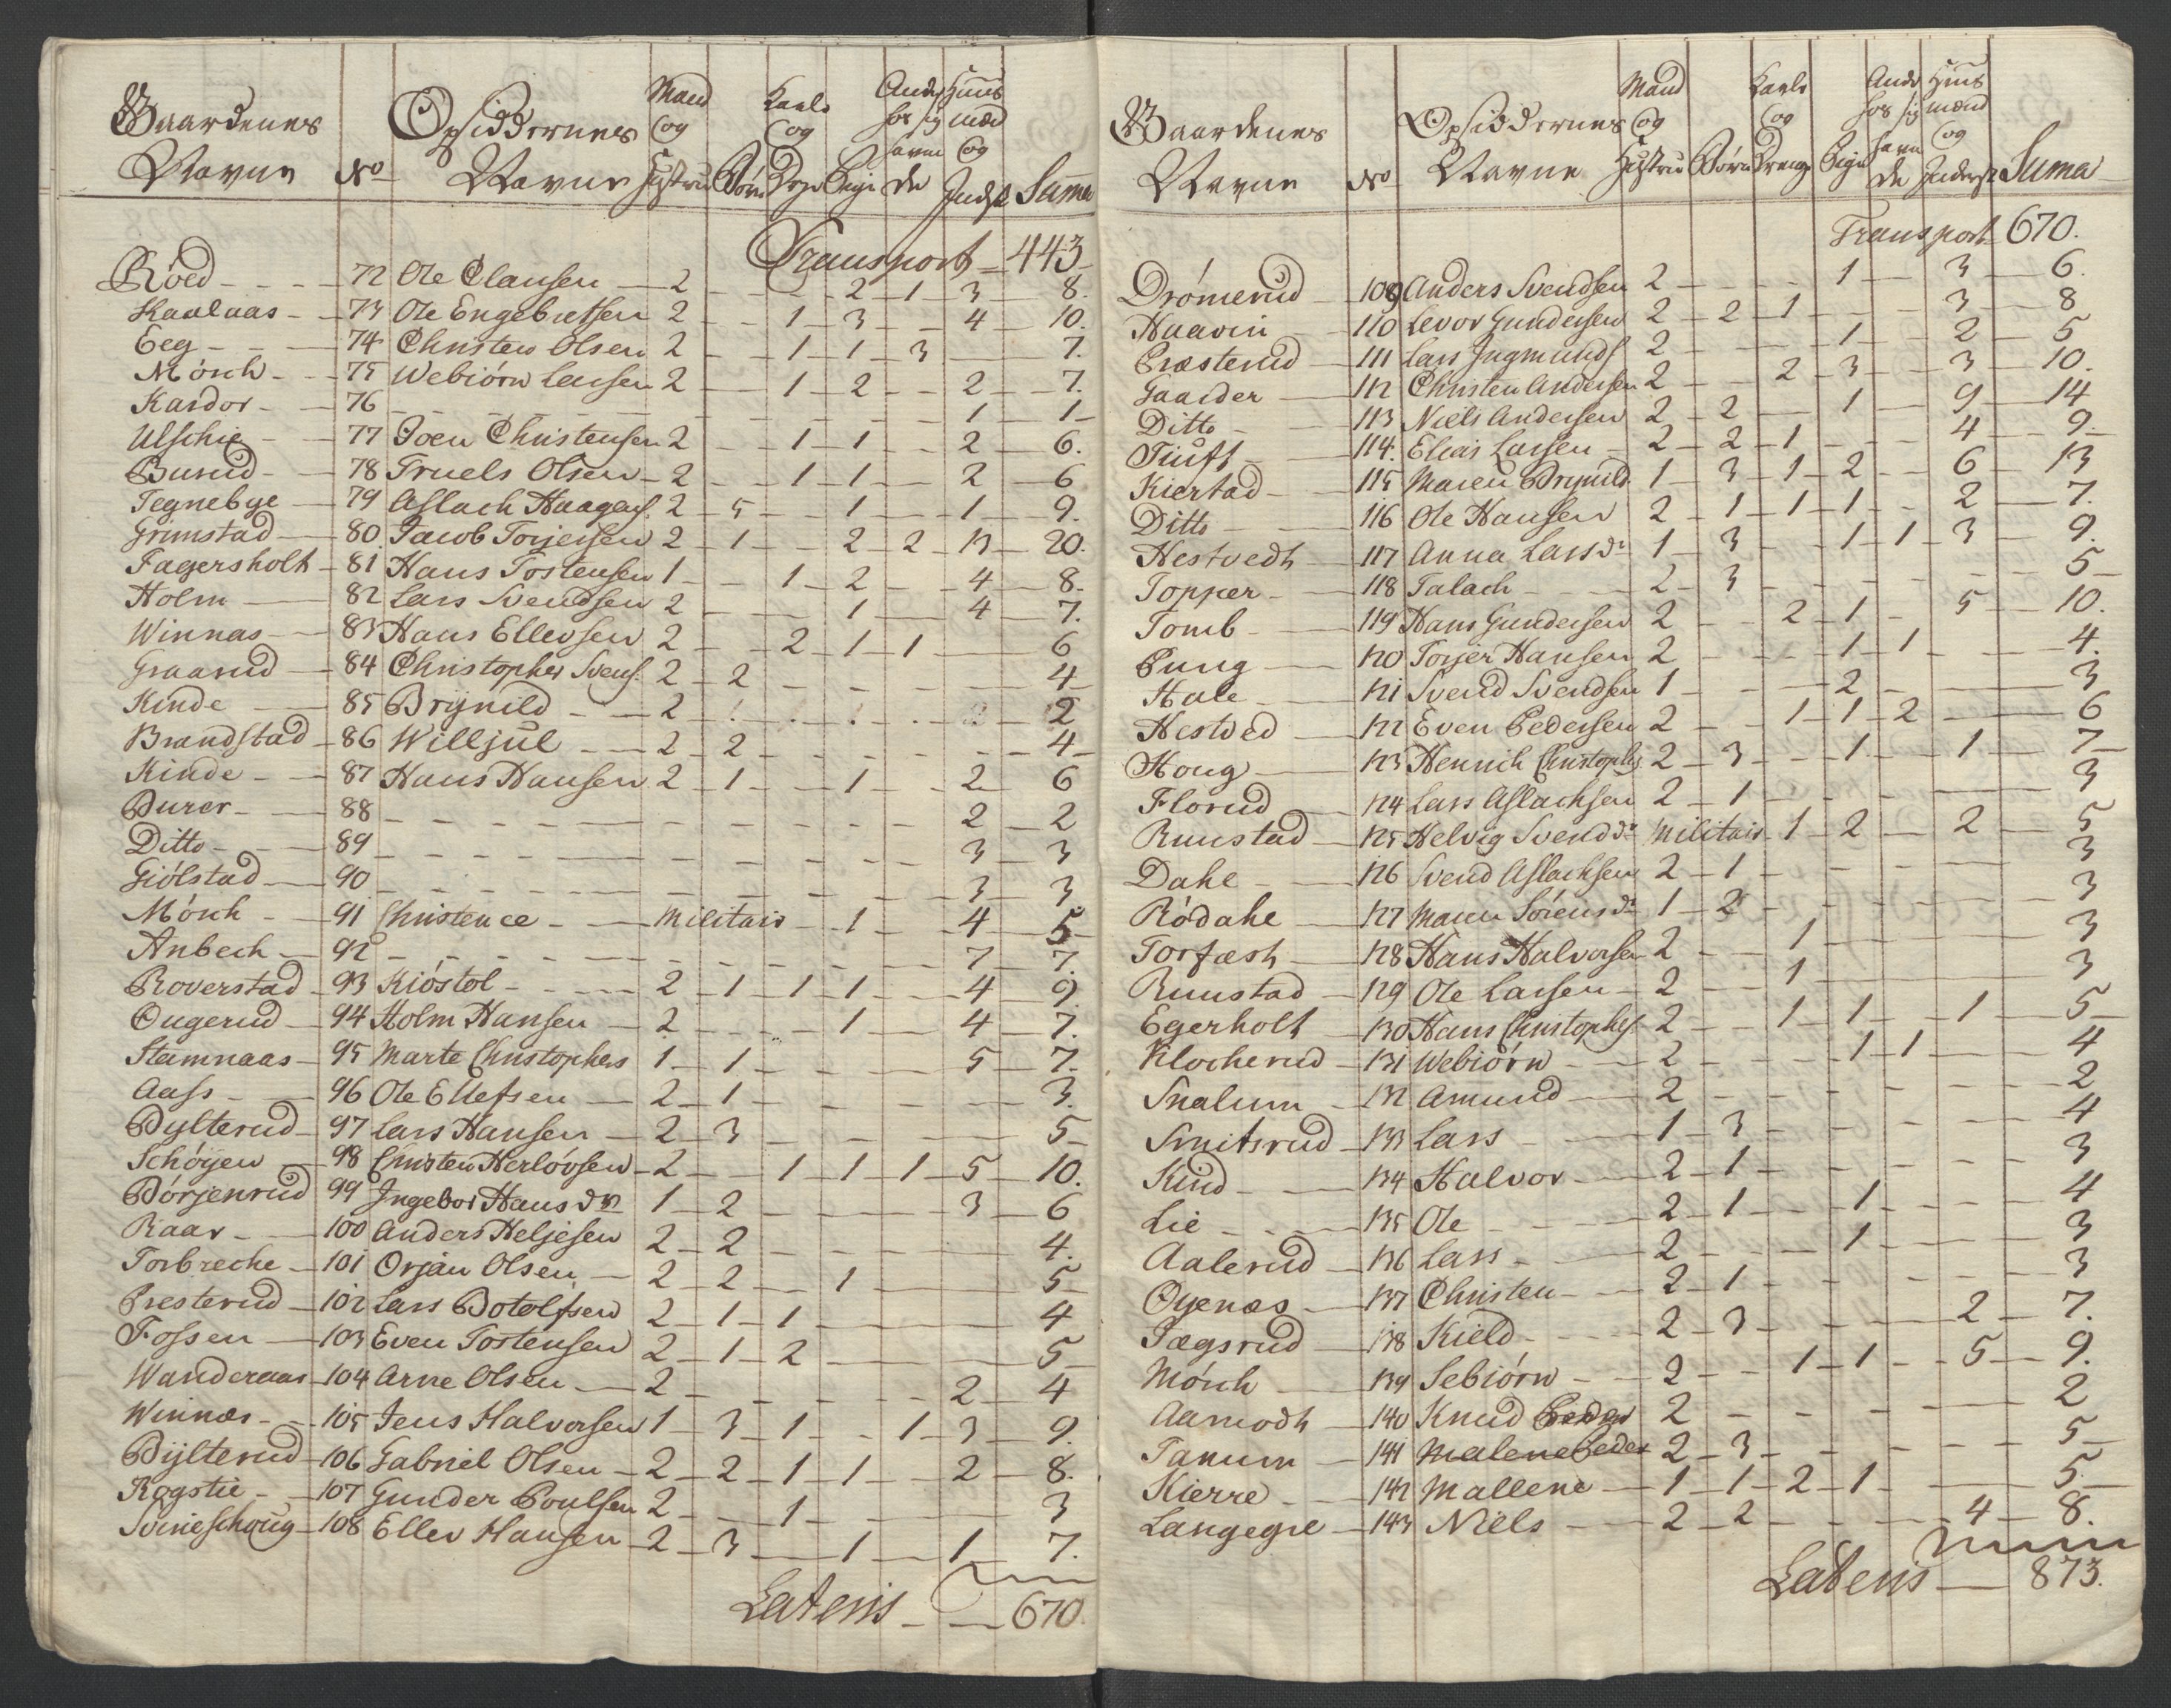 Gaardenes Navne No Opsiddernes Navne Mand og Hustru Børn Karle og Drge Piger Andre for sig sselv De Huus mænd og Inderst Suma
Transport 443
Röed 72 Ole Clausen 2 - - 2 1 3 8.
Kaalaas 73 Ole Engebretsen 2 - 1 3 - 4 10.
Eeg 74 Christen Olsen 2 - 1 1 3 - 7.
Mörch 75 Webiörn Larsen 2 - 1 2 - 2 7.
Kardor 76 - - - - - 1 1
Ulschie 77 Joen Christensen 2 - 1 1 - 2 6.
Burud 78 Truels Olsen 2 - 1 1 - 2 6
Tegnebye 79 Aslach Haagens. 2 5 - 1 - 1 9.
Grimstad 80 Jacob Torjersen 2 1 - 2 2 13 20.
Fagersholt 81 Hans Tostensen 1 - 1 2 - 4 8.
Holm 82 Lars Svendsen 2 - - 1 - 4 7.
Winnas 83 Hans Ellevsen 2 - 2 1 1 - 6
Graarud 84 Christopher Svens. 2 2 - - - - 4
Kinde 85 Brynild 2 - - - - - 2
Brandstad 86 Willjul 2 2 - - - - 4
Kinde 87 Hans Hansen 2 1 - 1 - 2 6
Burer 88 - - - - - 2 2
Ditto 89 - - - - - 3 3
Giölstad 90 - - - - - 3 3
Mörch 91 Christence Militair 1 - 4 5
Anbech 92 - - - - - 7 7.
Roverstad 93 Kiöstol 2 1 1 1 - 4 9.
Ougerud 94 Holm Hansen 2 - - 1 - 4 7.
Stamnaas 95 Marte Christophers 1 1 - - - 5 7.
Aass 96 Ole Ellefsen 2 1 - - - - 3.
Bylterud 97 Lars Hansen 2 3 - - - - 5
Schöyen 98 Christen Herlövsen 2 - 1 1 1 5 10.
Börjenrud 99 Ingebor Hans dr 1 2 - - - 3 6
Raar 100 Anders Heljesen 2 2 - - - - 4.
Torbreche 101 Orjan Olsen 2 2 - 1 - - 5
Presterud 102 Lars Botolfsen 2 1 1 - - - 4
Fossen 103 Even Tostensen 2 1 2 - - - 5
Wanderaas 104 Arne Olsen 2 - - - - 2 4
Winnær 105 Jens Halvorsen 1 3 1 - 1 3 9.
Bylterud 106 Gabriel Olsen 2 2 1 1 - 2 8.
Rogstie 107 Gunder Poulsen 2 - 1 - - - 3
Svineschoug 108 Ellev Hansen 2 3 - 1 - 1 7.
Lateris 670.
Gaardenes Navne No Opsiddernes Navne Mand og Hustru Børn Karle og Drenge Piger Andre for sig De Huus mænd og Inderst Suma
Transport 670.
Drömerud 109 Anders Svendsen 2 - - 1 - 3 6.
Haavin 110 Levor Gundersen 2 2 1 - - 3 8
Præsterud 111 Lars Ingmunds 2 - - 1 - 2 5
Gaarder 112 Christen Andersen 2 - 2 3 - 3 10.
Ditto 113 Niels Andersen 2 2 - 1 - 9 14
Tuuft 114. Elias Larsen 2 2 1 - - 4 9.
Kierstad 115 Maren Brynild. 1 3 1 2 - 6 13
Ditto 116 Ole Hansen 2 1 1 1 - 2 7.
Hestvedt 117 Anna Larsdr 1 3 - 1 1 3 9.
Topper 118 Talach 2 3 - - - - 5
Tomb 119 Hans Gundersen 2 - 2 1 - 5 10.
Pung 120 Torjer Hansen 2 - - 1 1 - 4.
Hale 121 Svend Svendsen 1 - - 2 - - 3
Hestved 122 Even Pedersen 2 - 1 1 2 - 6
Houg 123 Henrich Christophs 2 3 - 1 - 1 7
Florud 124 Lars Aslachsen 2 1 - - - - 3
Ruustad 125 Helvig Svend dr Militair 1 2 - 2 5
Dahe 126 Svend Aslachsen 2 1 - - - - 3
Rödahe 127 Maren Sörens dr 1 2 - - - - 3
Torfæst 128 Hans Halvorsen 2 - 1 - - - 3
Ruustad 129 Ole Larsen 2 - 1 - - - 3
Egerholt 130 Hans Christophs. 2 - 1 1 - 1 5
Klocherud 131 Webiörn 2 - - 1 1 - 4
Snalum 132 Amund 2 - - - - - 2
Smitsrud 133 Lars 1 3 - - - - 4
Kind 134 Halvor 2 1 - - - - 3
Lie 135 Ole 2 1 - 1 - - 4
Aalerud 136 Lars 2 - - 1 - - 3
Oyenæs 137 Christen 2 1 - - - - 3
Tægsrud 138 Kield 2 3 - - - 2 7.
Mörch 139 Sebiörn 2 - 1 1 - 5 9.
Aamodt 140 Knud Peder 2 - - - - - 2
Tanum 141 Malene Peder 2 3 - - - - 5
Kierre 142 Mallene 1 1 2 1 - - 5
Langegre 143 Niels 2 2 - - - 4 8.
Lateris 873.